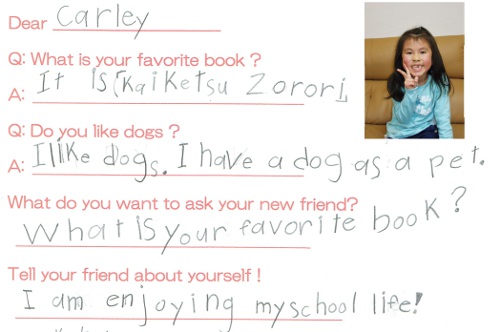 Dear Carley
Q: What is your favorite book ?
A: It is「Kaiketsu Zorori」
Q: Do you like dogs ?
A: I like dogs. I have a dog as a pet.
What do you want to ask your new friend?
What is your favorite book ?
Tell your friend about yourself !
I am enjoying my school life!